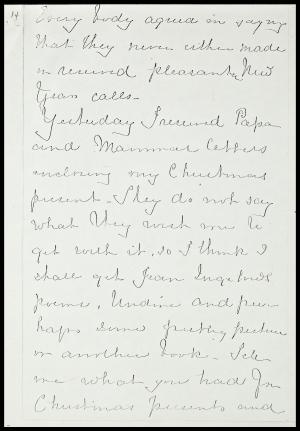 14
Every body agreed in saying
that they never either made
or received pleasanter New
Years calls.
Yesterday I received Papa
and Mammas letters
enclosing my Christmas
present. They do not say
what they wish me to
get with it, so I think I
shall get Jean Ingelow's
poems, Undine and per
haps some pretty picture
or another book. Tell
me what you had for
Christmas presents and